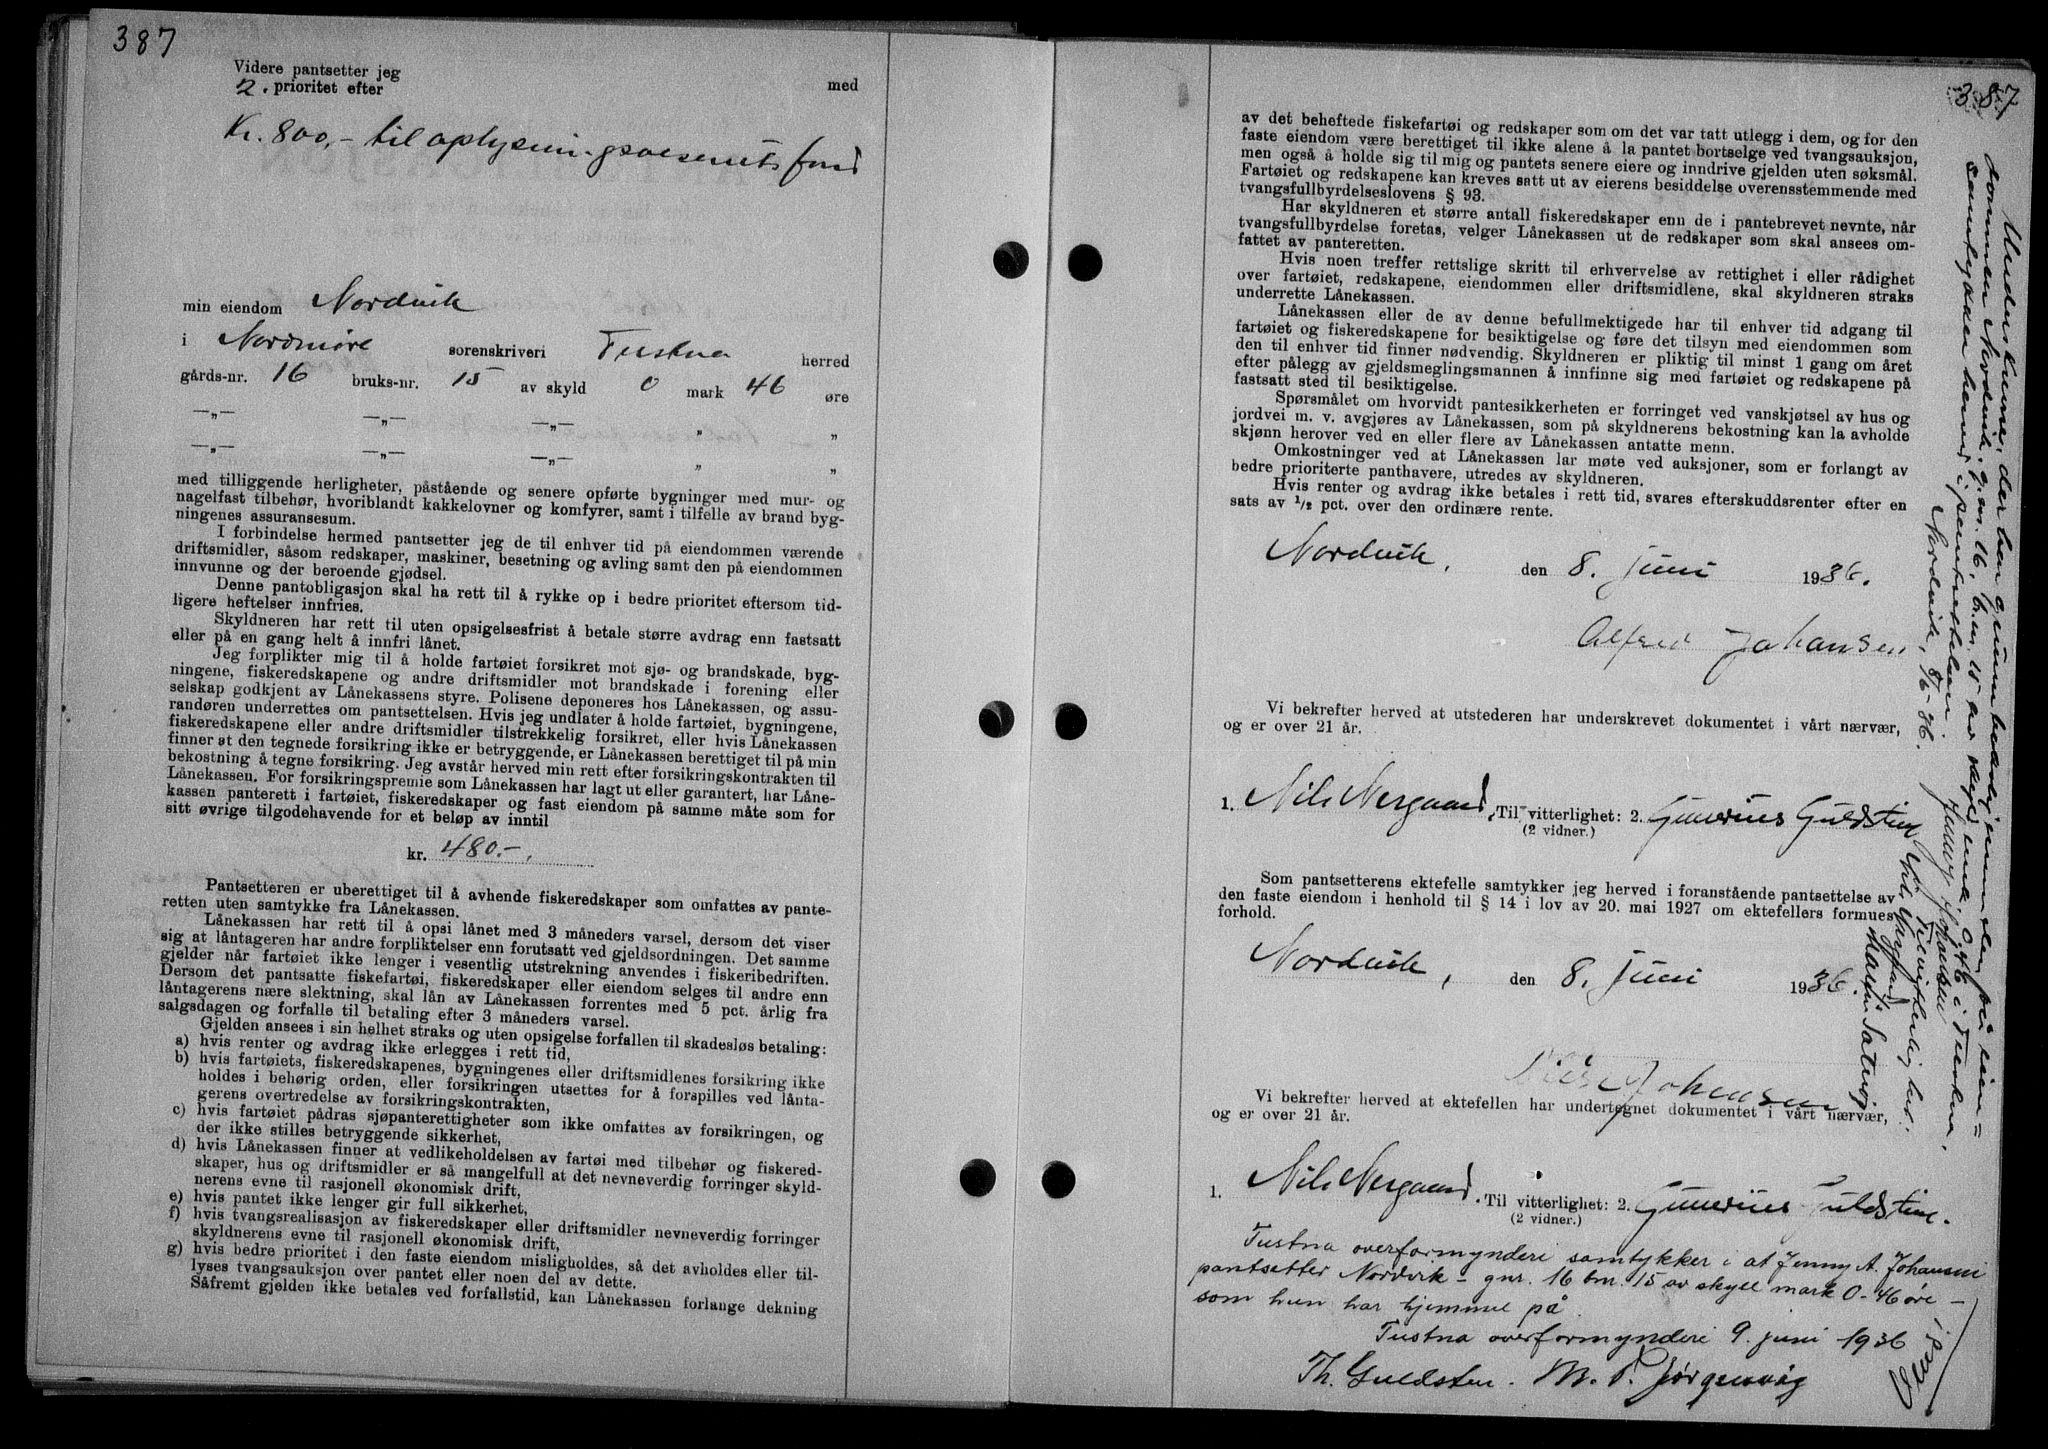 387
Videre pantsetter jeg
2. prioritet efter med
Kr. 800,- til oplysningsvesenets fond
min eiendom Nordvik
i Nordmøre sorenskriveri Tustna herred
gårds-nr. 16 bruks-nr. 15 av skyld 0 mark 46 øre
—„— —„— —„— „ „
—„— —„— —„— „ „
med tilliggende herligheter, påstående og senere opførte bygninger med mur- og
nagelfast tilbehør, hvoriblandt kakkelovner og komfyrer, samt i tilfelle av brand byg-
ningenes assuransesum.
I forbindelse hermed pantsetter jeg de til enhver tid på eiendommen værende
driftsmidler, såsom redskaper, maskiner, besetning og avling samt den på eiendommen
innvunne og der beroende gjødsel.
Denne pantobligasjon skal ha rett til å rykke op i bedre prioritet eftersom tid-
ligere heftelser innfries.
Skyldneren har rett til uten opsigelsesfrist å betale større avdrag enn fastsatt
eller på en gang helt å innfri lånet.
Jeg forplikter mig til å holde fartøiet forsikret mot sjø- og brandskade, byg-
ningene, fiskeredskapene og andre driftsmidler mot brandskade i forening eller
selskap godkjent av Lånekassens styre. Polisene deponeres hos Lånekassen, og assu-
randøren underrettes om pantsettelsen. Hvis jeg undlater å holde fartøiet, bygningene,
fiskeredskapene eller andre driftsmidler tilstrekkelig forsikret, eller hvis Lånekassen
finner at den tegnede forsikring ikke er betryggende, er Lånekassen berettiget til på min
bekostning å tegne forsikring. Jeg avstår herved min rett efter forsikringskontrakten til
Lånekassen. For forsikringspremie som Lånekassen har lagt ut eller garantert, har Låne-
kassen panterett i fartøiet, fiskeredskaper og fast eiendom på samme måte som for
sitt øvrige tilgodehavende for et beløp av inntil
kr. 480.-,
Pantsetteren er uberettiget til å avhende fiskeredskaper som omfattes av pante-
retten uten samtykke fra Lånekassen.
Lånekassen har rett til å opsi lånet med 3 måneders varsel, dersom det viser
sig at låntageren har andre forpliktelser enn forutsatt ved gjeldsordningen. Det samme
gjelder når fartøiet ikke lenger i vesentlig utstrekning anvendes i fiskeribedriften.
Dersom det pantsatte fiskefartøi, fiskeredskaper eller eiendom selges til andre enn
låntagerens nære slektning, skal lån av Lånekassen forrentes med 5 pct. årlig fra
salgsdagen og forfalle til betaling efter 3 måneders varsel.
Gjelden ansees i sin helhet straks og uten opsigelse forfallen til skadesløs betaling:
a) hvis renter og avdrag ikke erlegges i rett tid,
b) hvis fartøiets, fiskeredskapenes, bygningenes eller driftsmidlenes forsikring ikke
holdes i behørig orden, eller forsikringen utsettes for å forspilles ved lånta-
gerens overtredelse av forsikringskontrakten,
c) hvis fartøiet pådras sjøpanterettigheter som ikke omfattes av forsikringen, og
der ikke stilles betryggende sikkerhet,
d) hvis Lånekassen finner at vedlikeholdelsen av fartøi med tilbehør og fiskered-
skaper, hus og driftsmidler er så mangelfull at det nevneverdig forringer skyld-
nerens evne til rasjonell økonomisk drift,
e) hvis pantet ikke lenger gir full sikkerhet,
f) hvis tvangsrealisasjon av fiskeredskaper eller driftsmidler nevneverdig forringer
skyldnerens evne til rasjonell økonomisk drift,
g) hvis bedre prioritet i den faste eiendom misligholdes, så det avholdes eller til-
lyses tvangsauksjon over pantet eller noen del av dette.
Såfremt gjelden ikke betales ved forfallstid, kan Lånekassen forlange dekning
387
av det beheftede fiskefartøi og redskaper som om det var tatt utlegg i dem, og for den
faste eiendom være berettiget til ikke alene å la pantet bortselge ved tvangsauksjon,
men også å holde sig til mig og pantets senere eiere og inndrive gjelden uten søksmål.
Fartøiet og redskapene kan kreves satt ut av eierens besiddelse overensstemmende med
tvangsfullbyrdelseslovens § 93.
Har skyldneren et større antall fiskeredskaper enn de i pantebrevet nevnte, når
tvangsfullbyrdelse foretas, velger Lånekassen ut de redskaper som skal ansees om-
fattet av panteretten.
Hvis noen treffer rettslige skritt til erhvervelse av rettighet i eller rådighet
over fartøiet, redskapene, eiendommen eller driftsmidlene, skal skyldneren straks
underrette Lånekassen.
Lånekassen eller de av denne befullmektigede har til enhver tid adgang til
fartøiet og fiskeredskapene for besiktigelse og føre det tilsyn med eiendommen som
den til enhver tid finner nødvendig. Skyldneren er pliktig til minst 1 gang om året
efter pålegg av gjeldsmeglingsmannen å innfinne sig med fartøiet og redskapene på
fastsatt sted til besiktigelse.
Spørsmålet om hvorvidt pantesikkerheten er forringet ved vanskjøtsel av hus og
jordvei m. v. avgjøres av Lånekassen, som på skyldnerens bekostning kan la avholde
skjønn herover ved en eller flere av Lånekassen antatte menn.
Omkostninger ved at Lånekassen lar møte ved auksjoner, som er forlangt av
bedre prioriterte panthavere, utredes av skyldneren.
Hvis renter og avdrag ikke betales i rett tid, svares efterskuddsrenter efter en
sats av 1/2 pct. over den ordinære rente.
Nordvik, den 8. juni 1936.
Alfred Johansen
Vi bekrefter herved at utstederen har underskrevet dokumentet i vårt nærvær,
og er over 21 år.
1. Nils Nergaard. Til vitterlighet: 2. Gunerius Guldstein
(2 vidner.)
Som pantsetterens ektefelle samtykker jeg herved i foranstående pantsettelse av
den faste eiendom i henhold til § 14 i lov av 20. mai 1927 om ektefellers formues-
forhold.
Nordvik, den 8. juni 1936.
Johansen
Vi bekrefter herved at ektefellen har undertegnet dokumentet i vårt nærvær,
og er over 21 år.
1. Nils Nergaard. Til vitterlighet: 2. Gunerius Guldstein.
(2 vidner.)
Tustna overformynderi samtykker i at Jenny A. Johansen
pantsetter Nordvik - gnr. 16 bnr. 15 av skyld mark 0-46 øre -
som hun har hjemmel på.
Tustna overformynderi 9. juni 1936
Th. Guldsten. M. P. Jørgenvåg
Undertegnede, der har grunnbokshjemmelen på eien=
dommen Nordvik, g.nr. 16, b.nr. 15 av skyld mk. 0.46 i Tustna,
samtykker herved i pantsettelsen.
Nordvik, 8/6-36.
Jenny Johansen
Til vitterlighet: